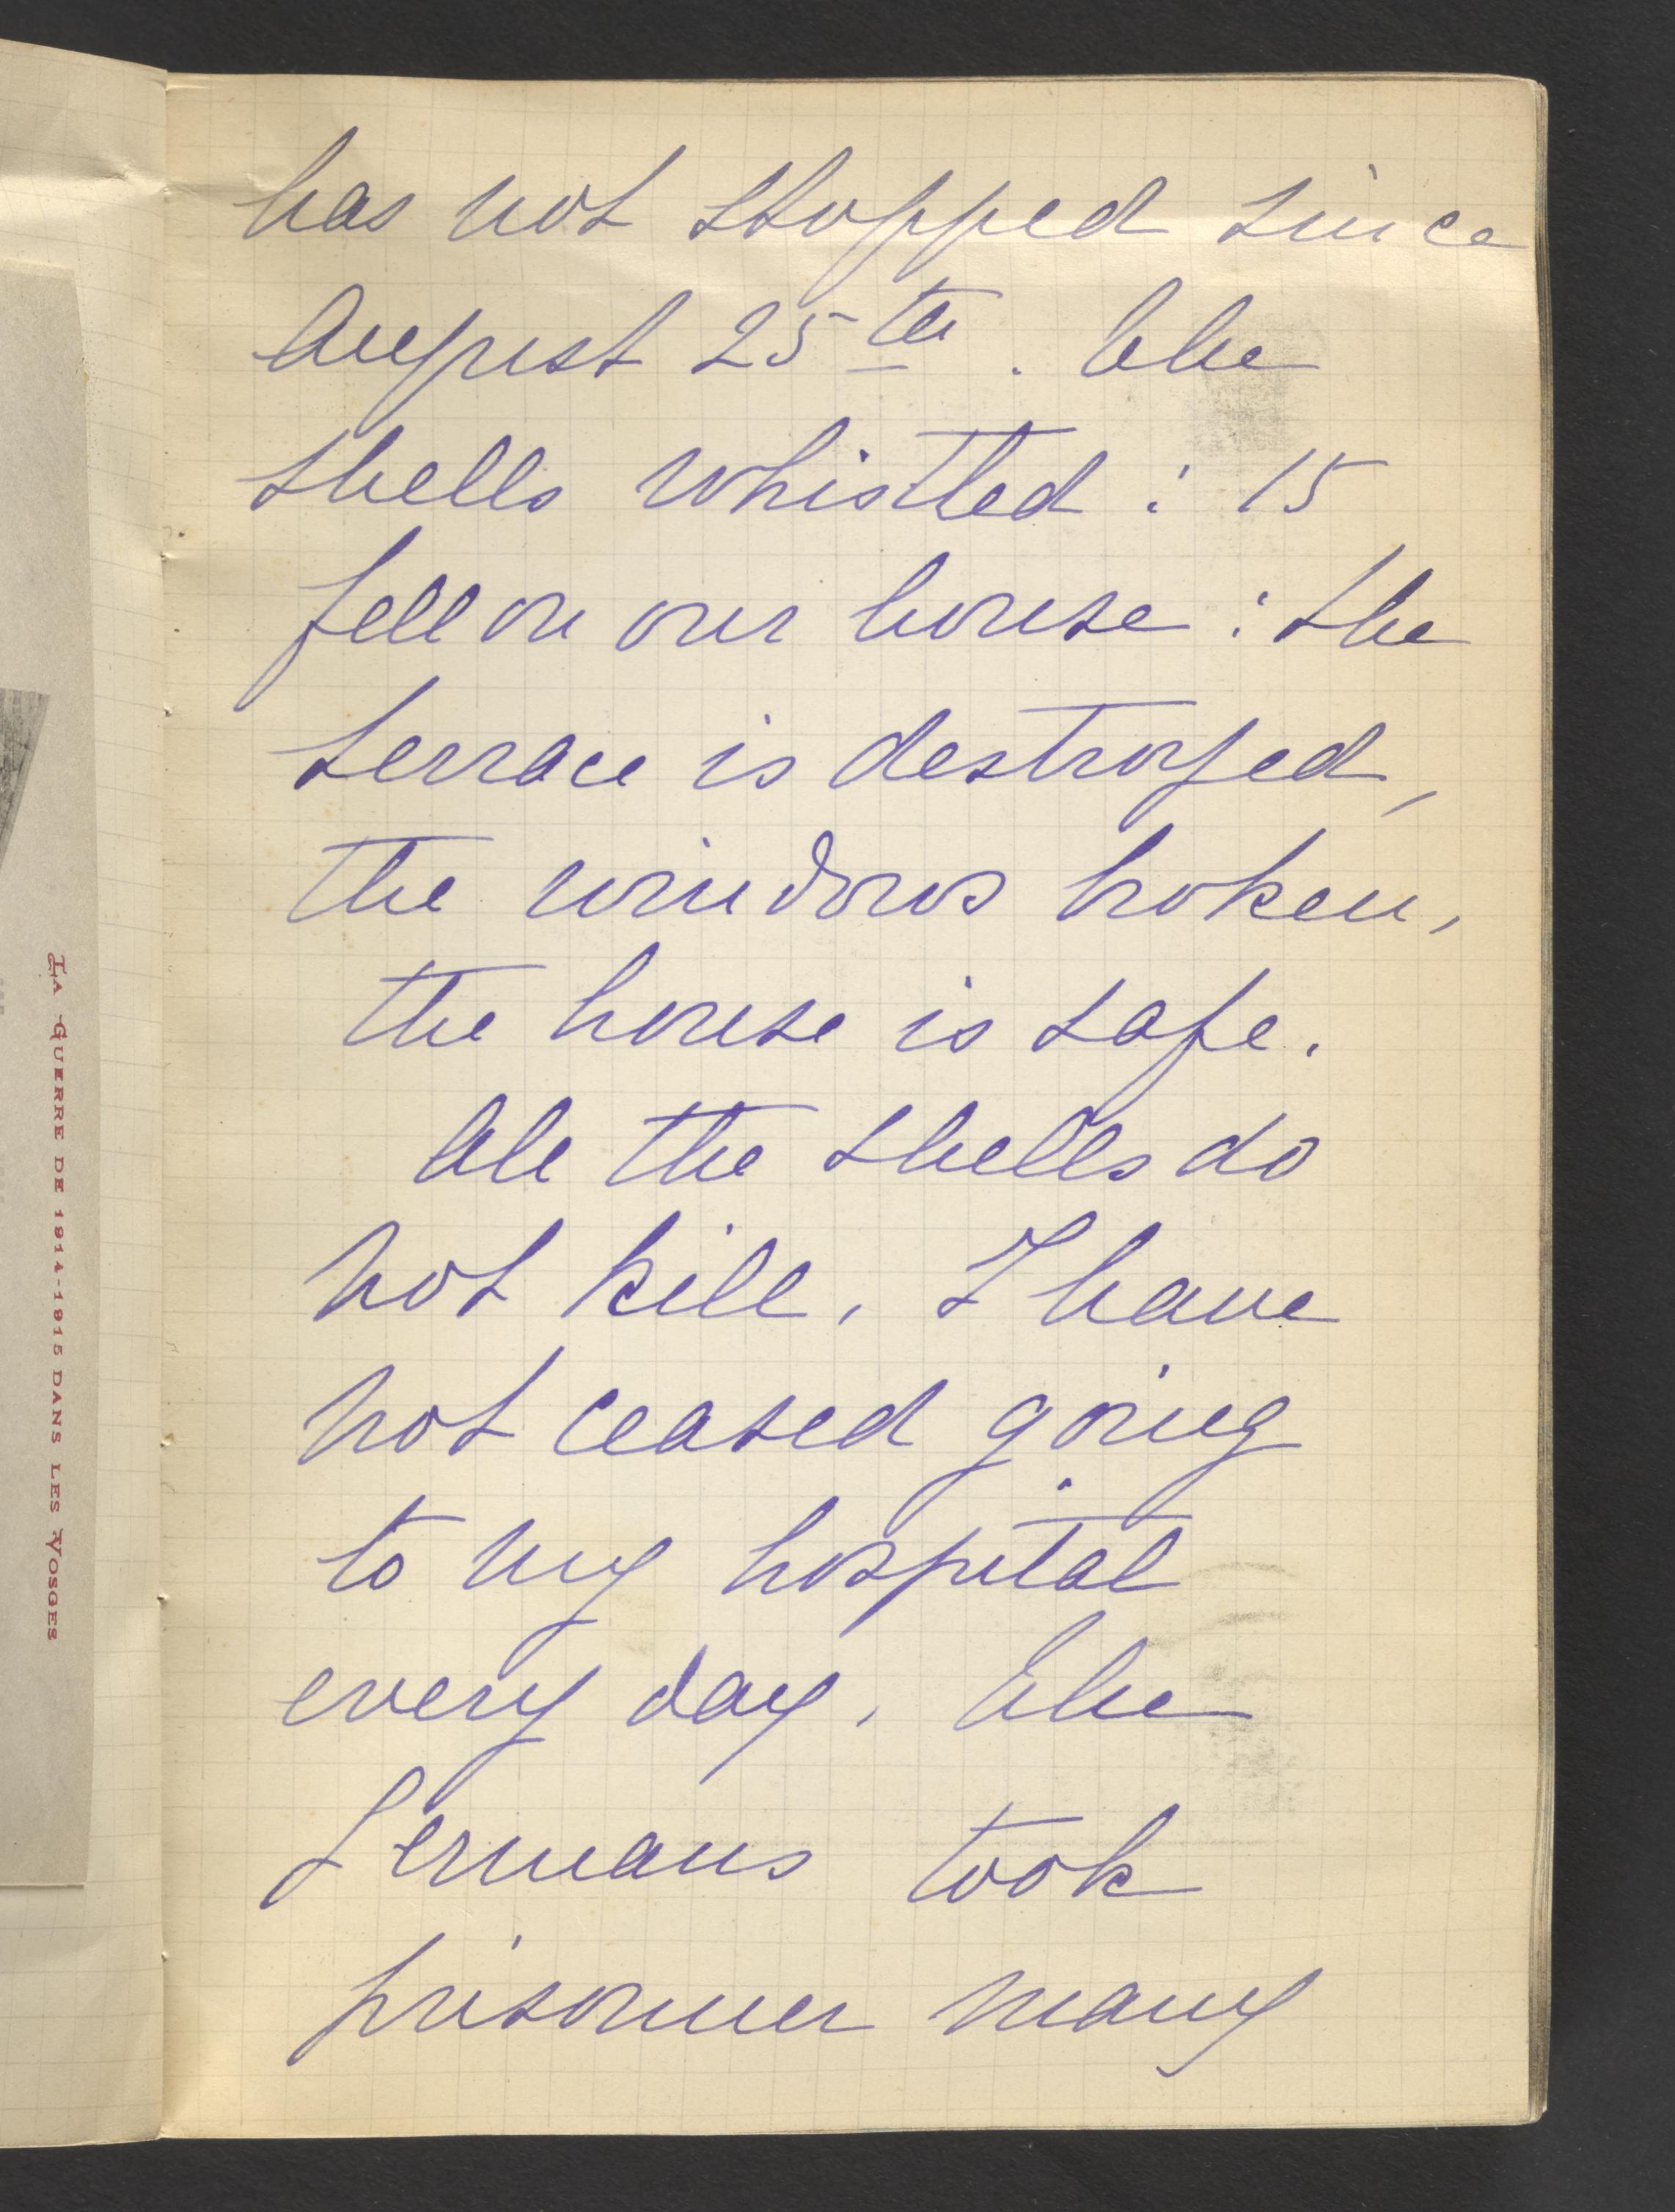 LA GUERRE DE 1914-1915 DANS LES VOSGES
has not stopped since
August 25th. The
shells whistled : 15
fell on our house : the
terrace is destroyed,
the windows broken,
the house is safe.
All the shells do
not kill. I have
not ceased going
to my hospital
every day. The
Germans took
prisonner many